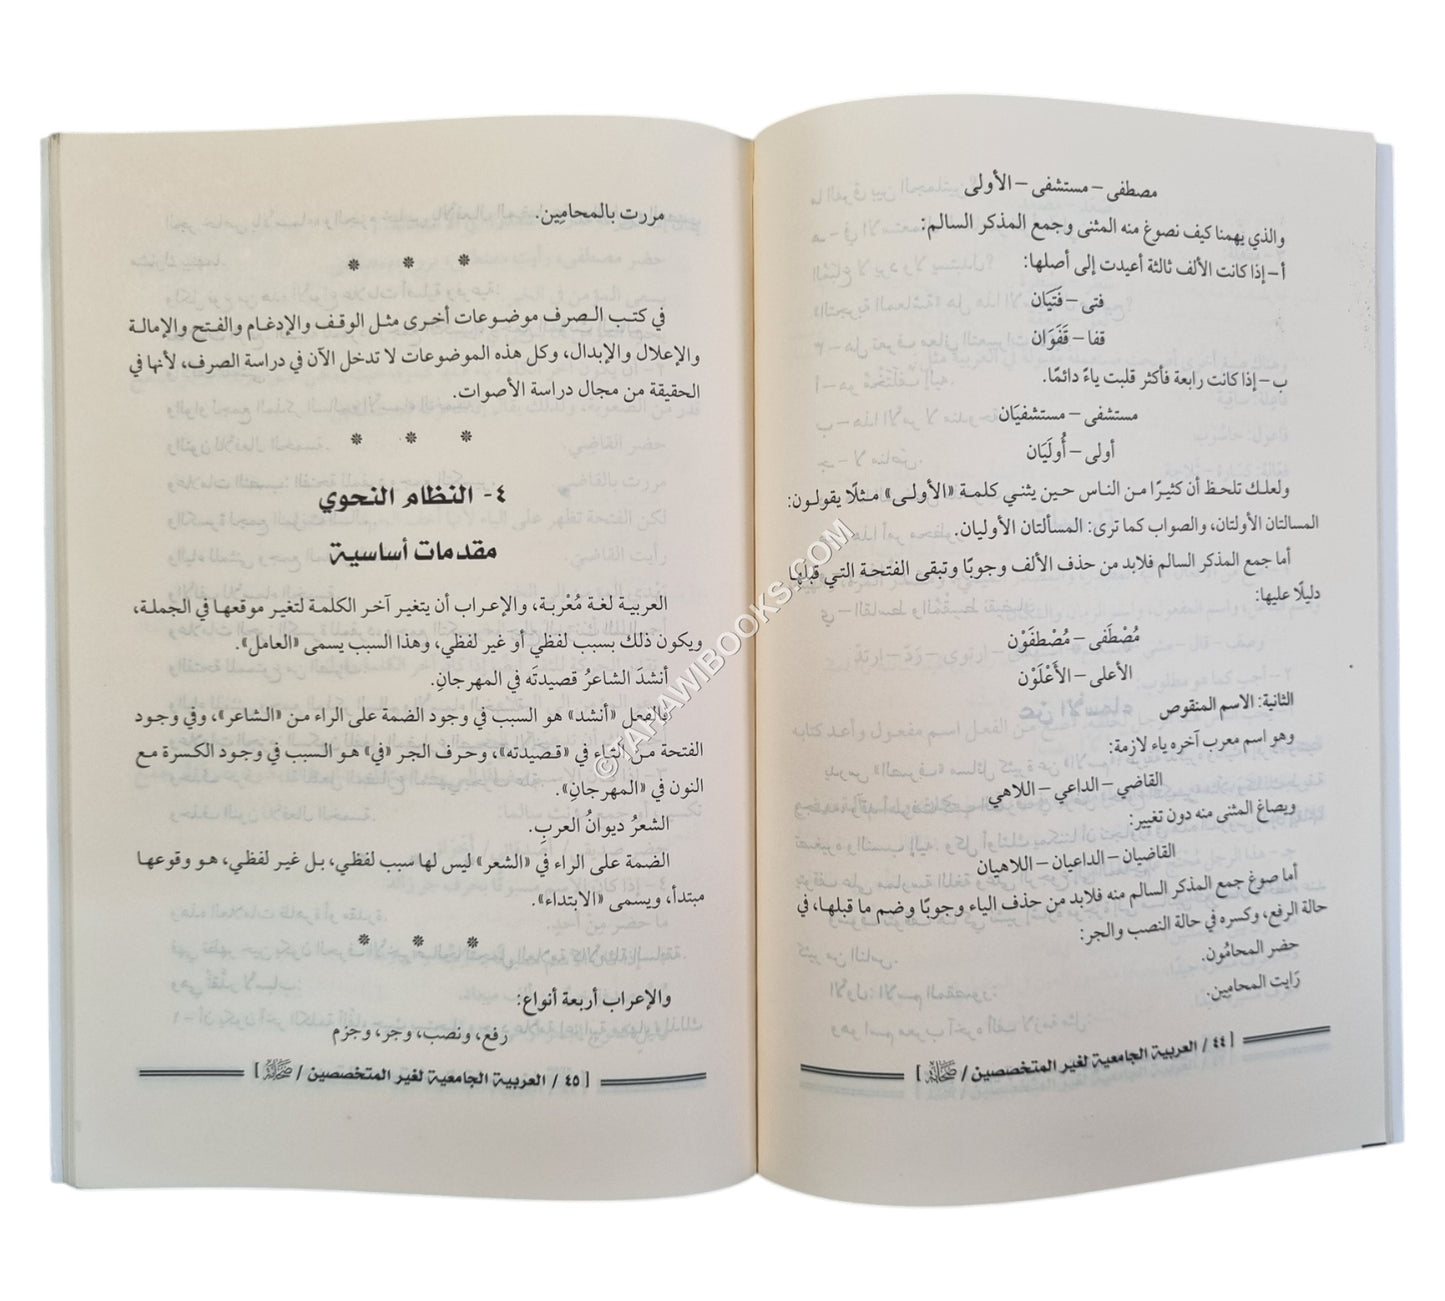 مصطفى – مستشفى – الأولى
والذي يهمنا كيف نصوغ منه المثنى وجمع المذكر السالم:
أ – إذا كانت الألف ثالثة أعيدت إلى أصلها:
فتى – فَتَيَان
قفا – قَفَوَان
ب – إذا كانت رابعة فأكثر قلبت ياءً دائمًا.
مستشفى – مستشفيَان
أولى – أُولَيَان
ولعلك تلحظ أن كثيرًا من الناس حين يثني كلمة «الأولى» مثلًا يقولون:
المسالتان الأولتان، والصواب كما ترى: المسألتان الأوليان.
أما جمع المذكر السالم فلابد من حذف الألف وجوبًا وتبقى الفتحة التي قبلها
دليلًا عليها:
مُصْطَفى – مُصْطفَوْن
الأعلى – الأَعْلَوْن
الثانية: الاسم المنقوص
وهو اسم معرب آخره ياء لازمة:
القاضي – الداعي – اللاهي
ويصاغ المثنى منه دون تغيير:
القاضيان – الداعيان – اللاهيان
أما صوغ جمع المذكر السالم منه فلابد من حذف الياء وجوبًا وضم ما قبلها، في
حالة الرفع، وكسره في حالة النصب والجر:
حضر المحامُون.
رَايت المحامِين.
[ ٤٤ / العربية الجامعية لغير المتخصصين / ]
مررت بالمحامِين.
* * *
في كتب الصرف موضوعات أخرى مثل الوقف والإدغام والفتح والإمالة
والإعلال والإبدال، وكل هذه الموضوعات لا تدخل الآن في دراسة الصرف، لأنها في
الحقيقة من مجال دراسة الأصوات.
* * *
٤- النظام النحوي
مقدمات أساسية
العربية لغة مُعْربة، والإعراب أن يتغير آخر الكلمة لتغير موقعها في الجملة،
ويكون ذلك بسبب لفظي أو غير لفظي، وهذا السبب يسمى «العامل».
أنشدَ الشاعرُ قصيدتَه في المهرجانِ.
فالفعل «أنشد» هو السبب في وجود الضمة على الراء من «الشاعر»، وفي وجود
الفتحة من التاء في «قصيدته»، وحرف الجر «في» هو السبب في وجود الكسرة مع
النون في «المهرجانِ».
الشعرُ ديوانُ العربِ.
الضمة على الراء في «الشعر» ليس لها سبب لفظي، بل غير لفظي، هو وقوعها
مبتدأ، ويسمى «الابتداء».
* * *
والإعراب أربعة أنواع:
رفع، ونصب، وجر، وجزم
[ ٤٥ / العربية الجامعية لغير المتخصصين / ]
©TAHAWIBOOKS.COM